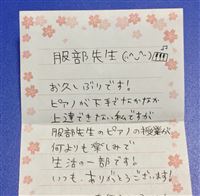 服部先生 (˶ᵔᵕᵔ˶)
お久しぶりです!
ピアノが下手でなかなか
上達できない私ですが
服部先生のピアノの授業が
何よりも楽しみで
生活の一部です!
いつも、ありがとうございます!